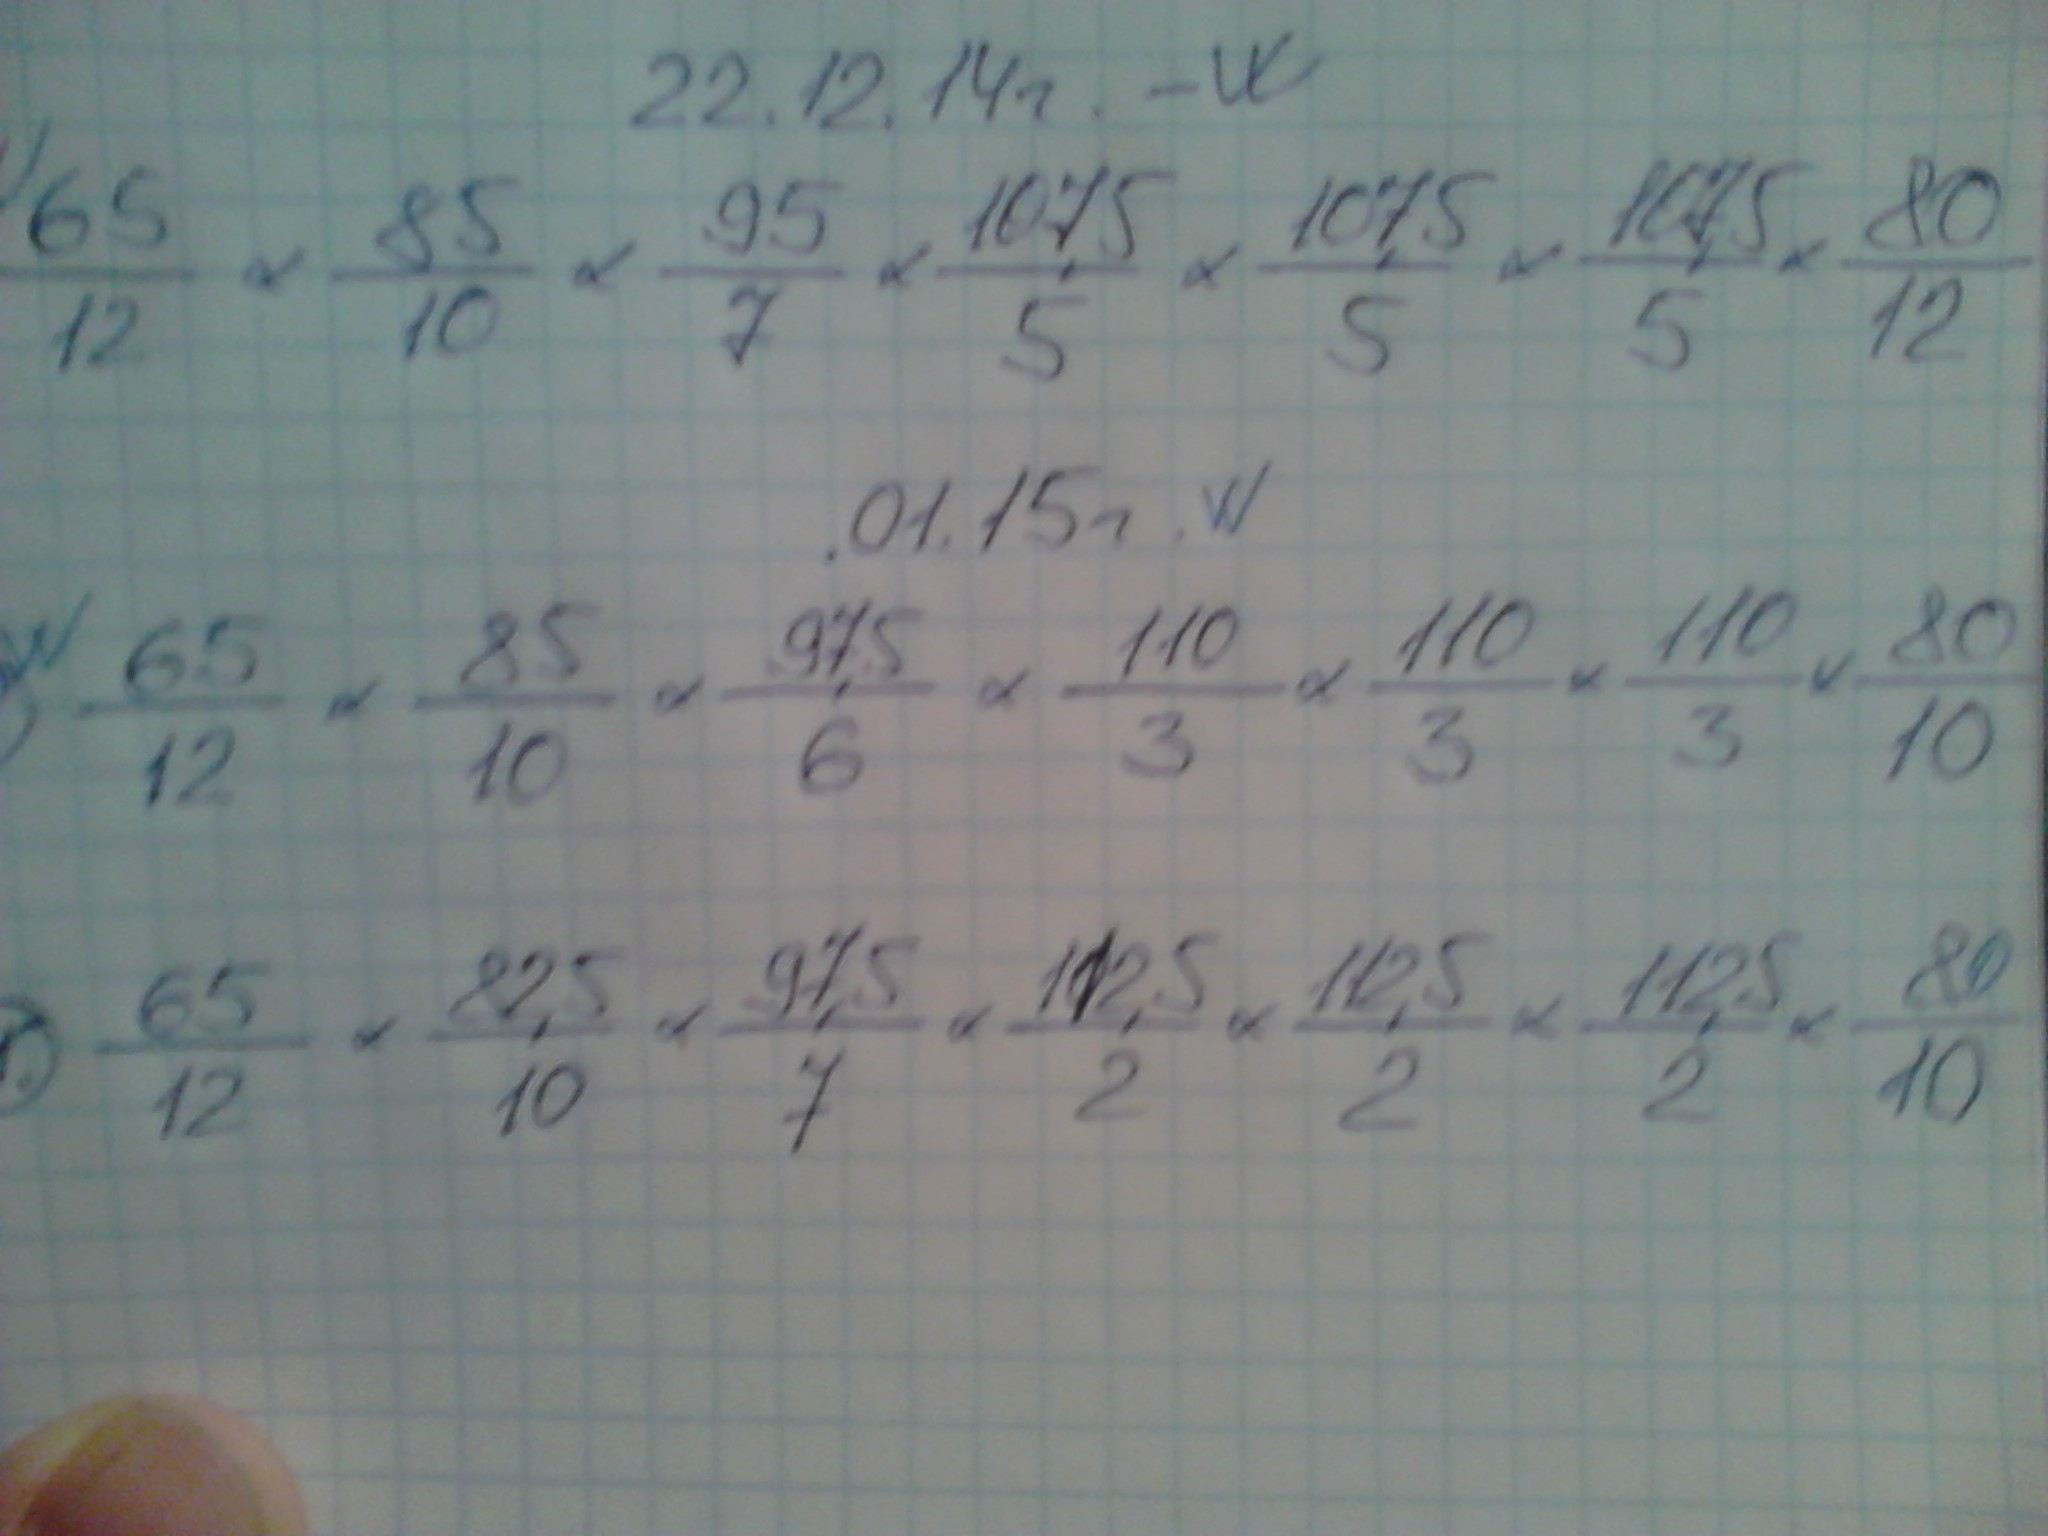 22.12.14г. -W
65/12 × 85/10 × 95/7 × 107,5/5 × 107,5/5 × 107,5/5 × 80/12
.01.15г.W
65/12 × 85/10 × 97,5/6 × 110/3 × 110/3 × 110/3 × 80/10
65/12 × 82,5/10 × 97,5/7 × 112,5/2 × 112,5/2 × 112,5/2 × 80/10